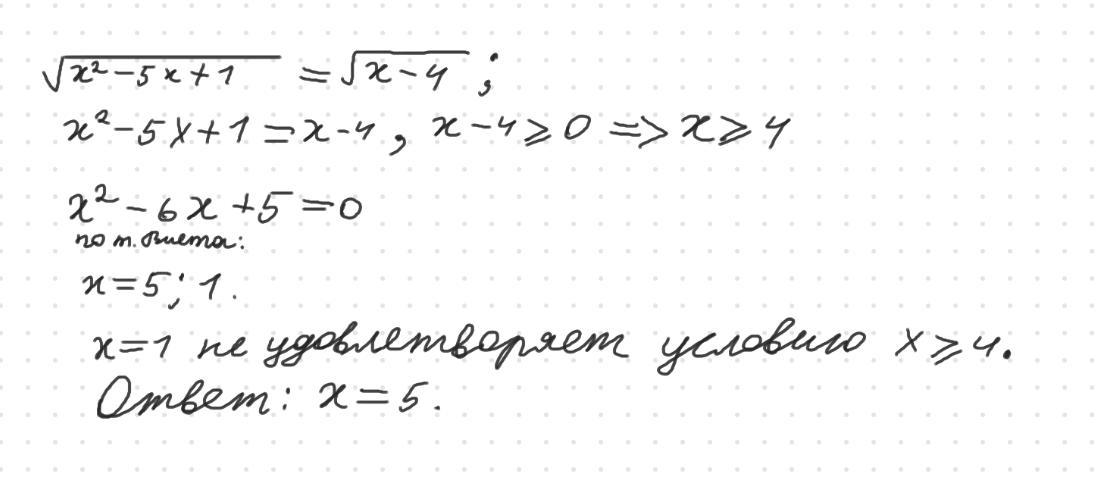 √(x²-5x+1) = √(x-4) ;
x²-5x+1=x-4, x-4⩾0 => x⩾4
x²-6x+5=0
по т. Виета:
x=5; 1.
x=1 не удовлетворяет условию x⩾4.
Ответ: x=5.